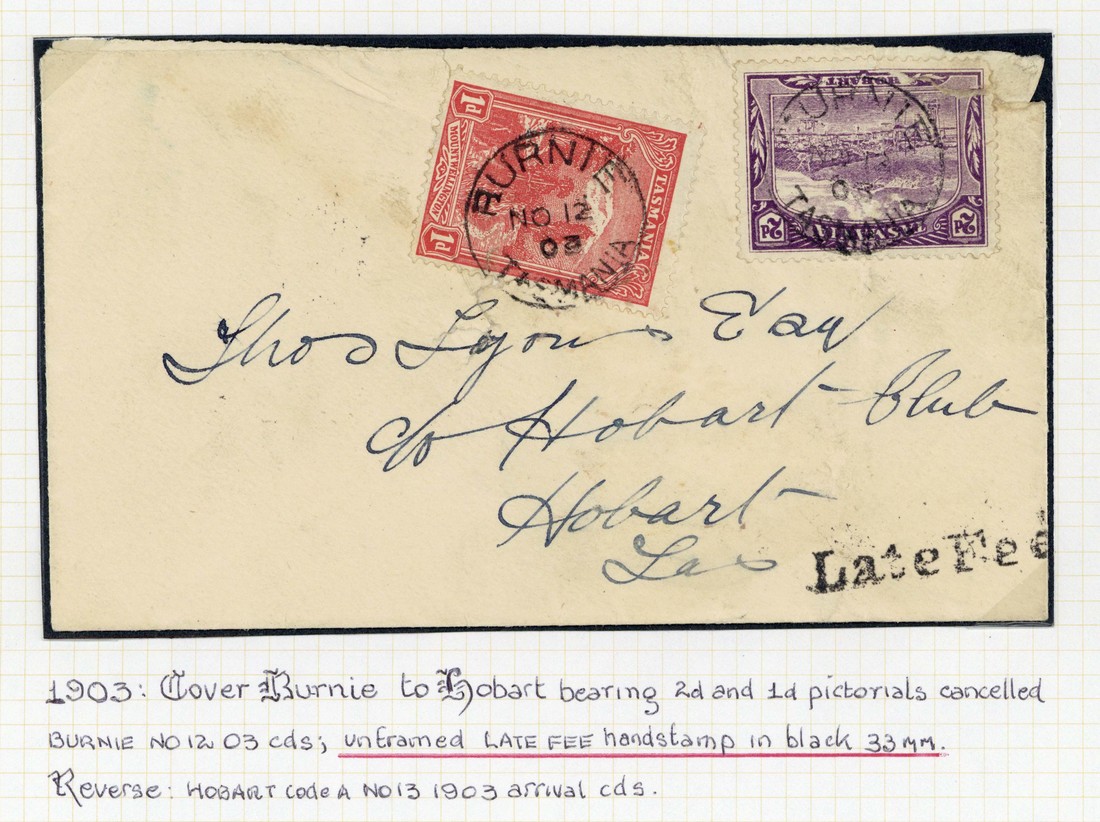 1d
MOUNT WELLINGTON
1d
TASMANIA
BURNIE
NO 12
03
TASMANIA
HOBART
2d
TASMANIA
2d
BURNIE
TASMANIA
Thos Lyons Esq
c/o Hobart Club
Hobart
Tas
Late Fee
1903: Cover Burnie to Hobart bearing 2d and 1d pictorials cancelled
BURNIE NO 12 03 cds; unframed LATE FEE handstamp in black 33 MM.
Reverse: HOBART code A NO 13 1903 arrival cds.